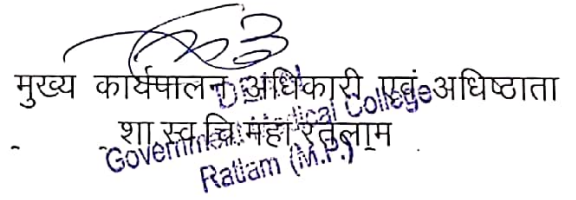 मुख्य कार्यपालन अधिकारी एवं अधिष्ठाता
शा.स्व.चि.महा.रतलाम
Government Medical College
Ratlam (M.P.)